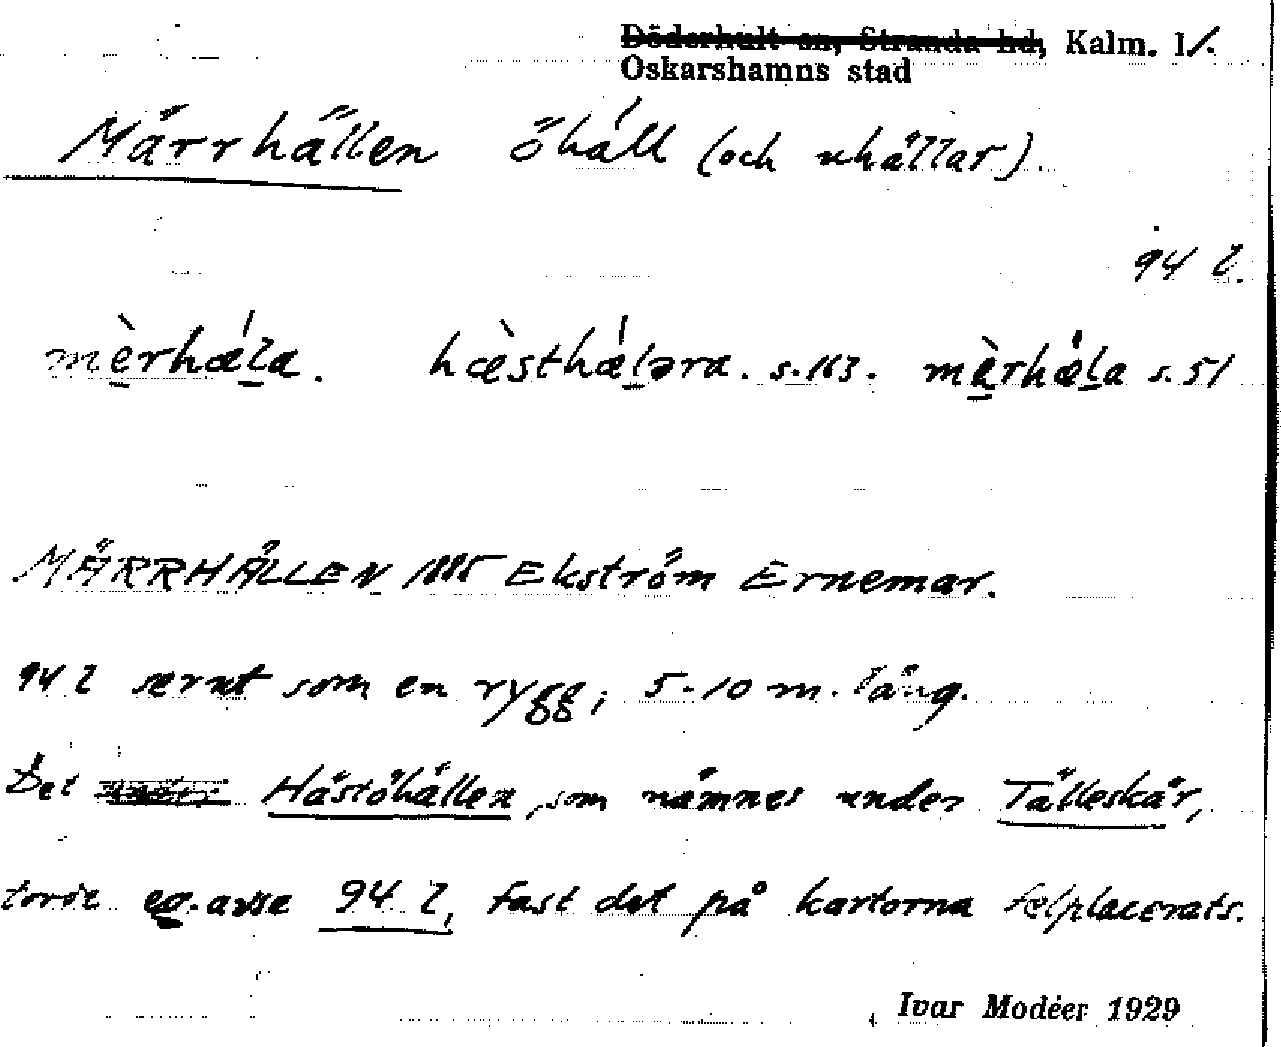 Döderhult sn, Stranda hd, Kalm. l.
Oskarshamns stad
Märrhällen öhäll (och uhällar).
94 l.
mèrhæla. hæsthæləra. s. 163. mèrhæla s. 51
MÄRRHÄLLEN 1885 Ekström Ernemar.
94 l ser ut som en rygg, 5-10 m. lång.
Det Hästöhällen, som nämnes under Tälleskär,
torde eg. avse 94 l, fast det på kartorna felplacerats.
Ivar Modéer 1929